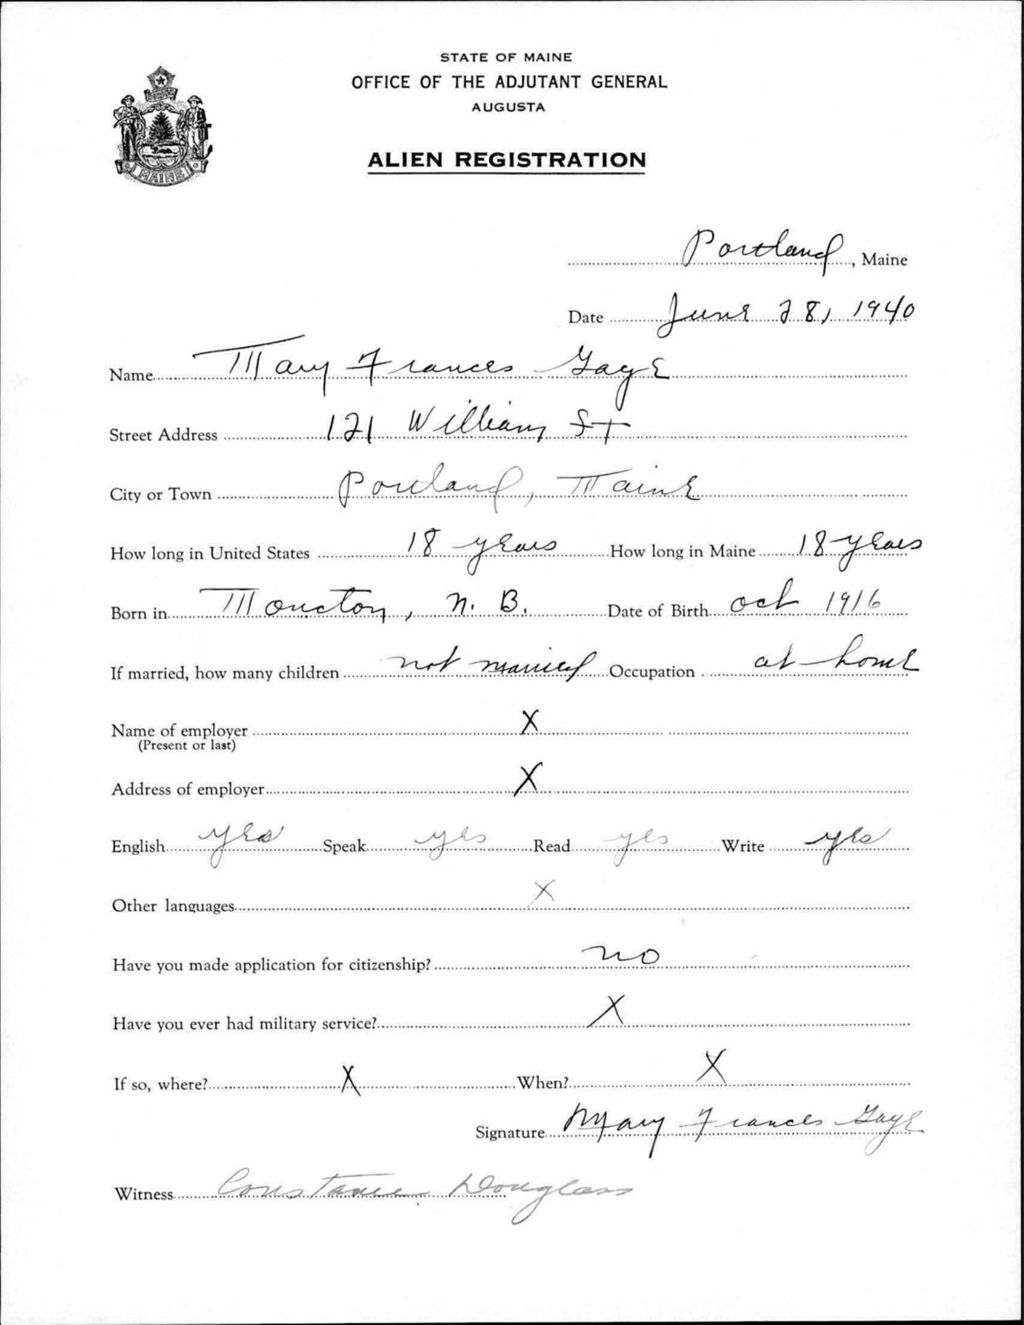 STATE OF MAINE
OFFICE OF THE ADJUTANT GENERAL
AUGUSTA
ALIEN REGISTRATION
MAINE
Portland, Maine
Date June 28, 1940
Name Mary Frances Gaye
Street Address 121 William St
City or Town Portland, Maine
How long in United States 18 years How long in Maine 18 years
Born in Moncton, N. B. Date of Birth Oct 1916
If married, how many children not married Occupation at home
Name of employer X
(Present or last)
Address of employer X
English yes Speak yes Read yes Write yes
Other languages X
Have you made application for citizenship? no
Have you ever had military service? X
If so, where? X When? X
Signature Mary Frances Gaye
Witness Constance Douglass